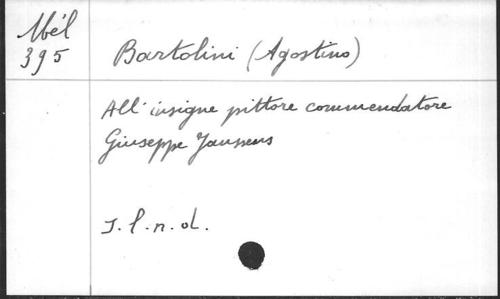 Mél
395
Bartolini (Agostino)
All' insigne pittore commendatore
Giuseppe Janssens
S. l. n. d.